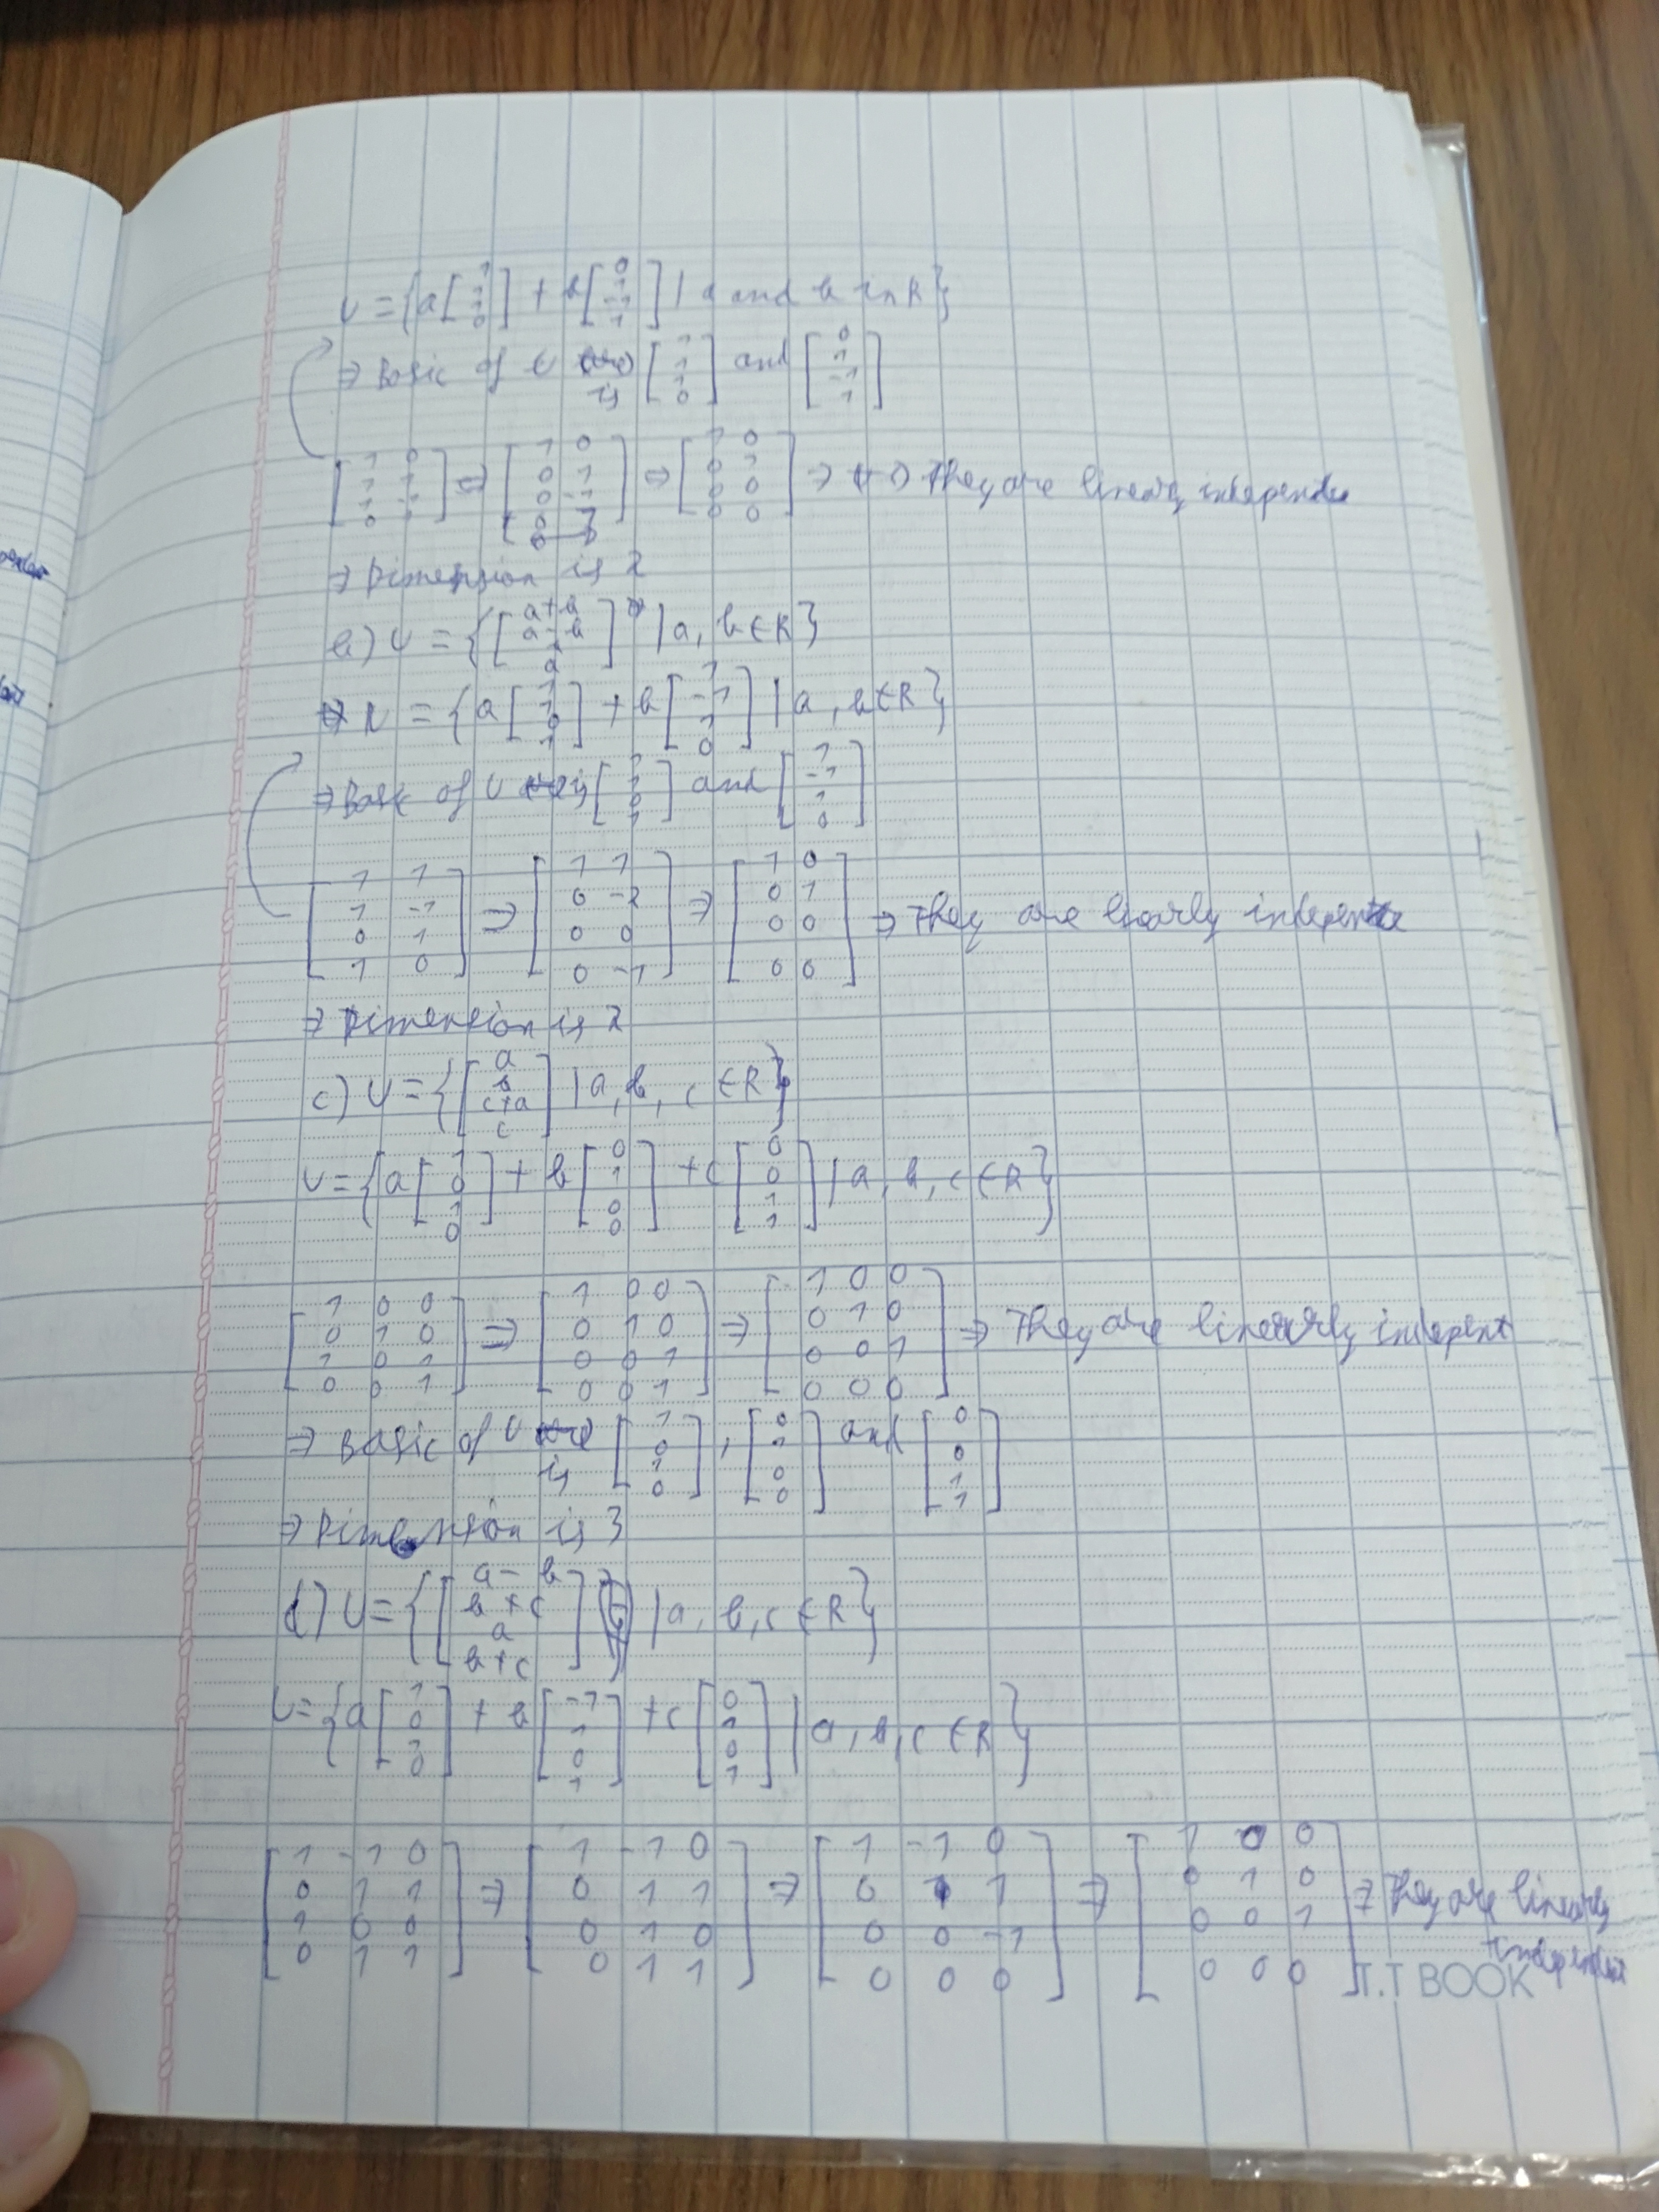 U = {a[1 1 1 0] + b[0 1 -1 1] | a and b in R}
⇒ Basic of U is [1 1 1 0] and [0 1 -1 1]
[1 0; 1 1; 1 -1; 0 1] ⇒ [1 0; 0 1; 0 -1; 0 1] ⇒ [1 0; 0 1; 0 0; 0 0] ⇒ They are linearly independen
⇒ Dimension is 2
b) U = {[a+b a-b b a] | a, b ∈ R}
⇒ U = {a[1 1 0 1] + b[1 -1 1 0] | a, b ∈ R}
⇒ Basic of U is [1 1 0 1] and [1 -1 1 0]
[1 1; 1 -1; 0 1; 1 0] ⇒ [1 1; 0 -2; 0 0; 0 -1] ⇒ [1 0; 0 1; 0 0; 0 0] ⇒ They are linearly indepent
⇒ Dimension is 2
c) U = {[a b c+a c] | a, b, c ∈ R}
U = {a[1 0 1 0] + b[0 1 0 0] + c[0 0 1 1] | a, b, c ∈ R}
[1 0 0; 0 1 0; 1 0 1; 0 0 1] ⇒ [1 0 0; 0 1 0; 0 0 1; 0 0 1] ⇒ [1 0 0; 0 1 0; 0 0 1; 0 0 0] ⇒ They are linearly indepent
⇒ Basic of U is [1 0 1 0], [0 1 0 0] and [0 0 1 1]
⇒ Dimension is 3
d) U = {[a-b b+c a b+c] | a, b, c ∈ R}
U = {a[1 0 1 0] + b[-1 1 0 1] + c[0 1 0 1] | a, b, c ∈ R}
[1 -1 0; 0 1 1; 1 0 0; 0 1 1] ⇒ [1 -1 0; 0 1 1; 0 1 0; 0 1 1] ⇒ [1 -1 0; 0 1 1; 0 0 -1; 0 0 0] ⇒ [1 0 0; 0 1 0; 0 0 1; 0 0 0] ⇒ They are linearly
independent
T.T BOOK